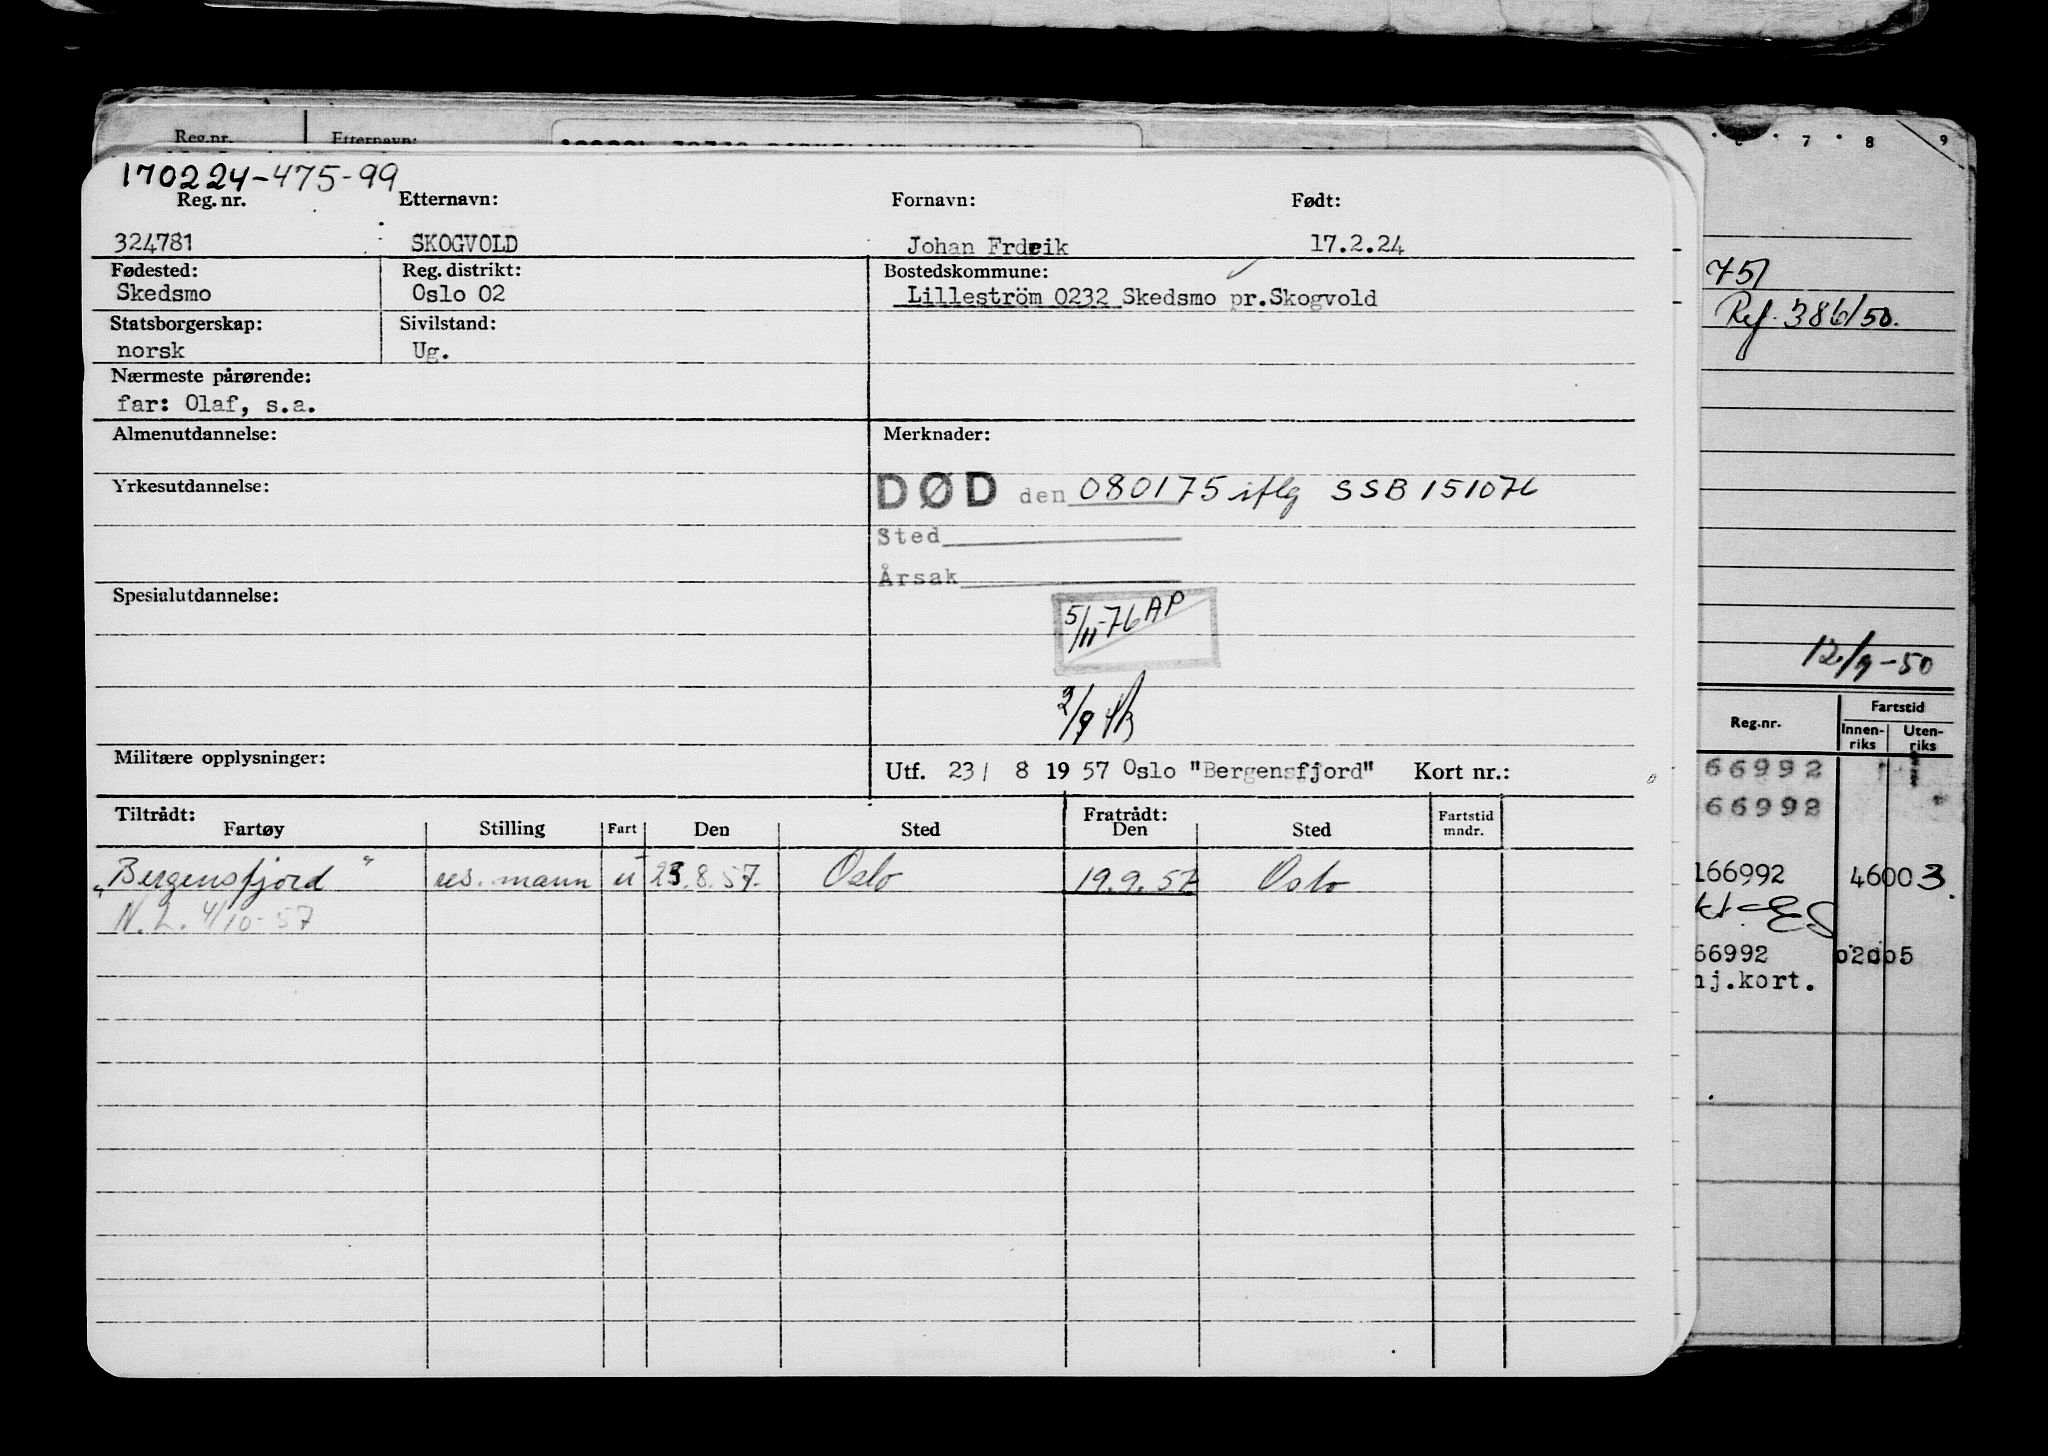 Reg.nr. Etternavn:
7 8 9
170224-475-99
Reg. nr. Etternavn: Fornavn: Født:
324781 SKOGVOLD Johan Frdrik 17.2.24
Fødested: Reg. distrikt: Bostedskommune:
Skedsmo Oslo 02 Lilleström 0232 Skedsmo pr.Skogvold
Statsborgerskap: Sivilstand:
norsk Ug.
Nærmeste pårørende:
far: Olaf, s.a.
Almenutdannelse: Merknader:
Yrkesutdannelse: DØD den 080175 iflg SSB 151076
Sted
Årsak
Spesialutdannelse:
5/11-76 AP
2/9
Militære opplysninger: Utf. 23/ 8 1957 Oslo "Bergensfjord" Kort nr.:
Tiltrådt: Fratrådt:
Fartøy Stilling Fart Den Sted Den Sted Fartstid mndr.
"Bergensfjord" res. mann u 23.8.57. Oslo 19.9.57 Oslo
N.L. 4/10-57
751
Ref. 386/50.
12/9-50
Reg.nr. Fartstid
Innen-riks Uten-riks
66992
66992
166992 46003.
66992 02005
nj.kort.